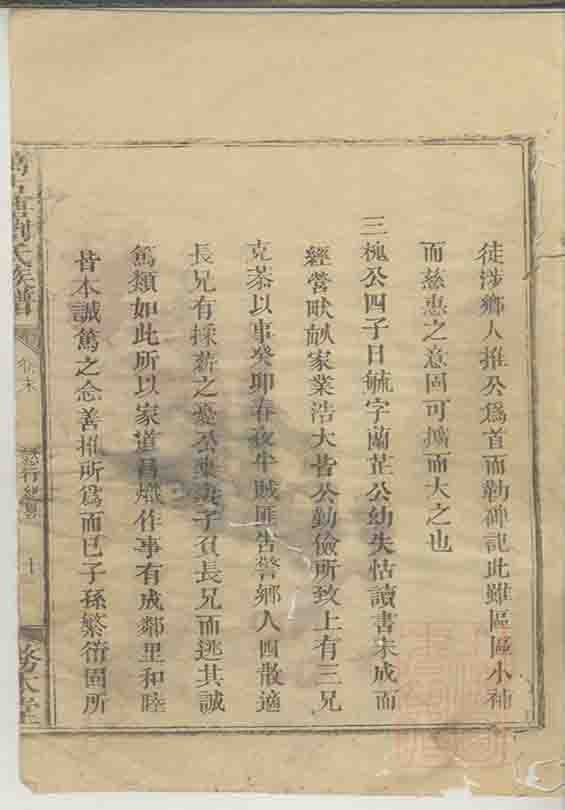 徒涉鄉人推公為首而勒碑記此雖區區小補
而慈惠之意固可擴而大之也
三槐公四子曰毓字蘭芷公幼失怙讀書未成而
經營畎畝家業浩大皆公勤儉所致上有三兄
克恭以事癸卯春夜半賊匪告警鄉人四散適
長兄有採薪之憂公棄妻子負長兄而逃其誠
篤類如此所以家道昌熾作事有成鄰里和睦
皆本誠篤之念善推所為而已子孫繁衍固所
劉氏族譜
卷末
懿行紀畧
十
務本堂